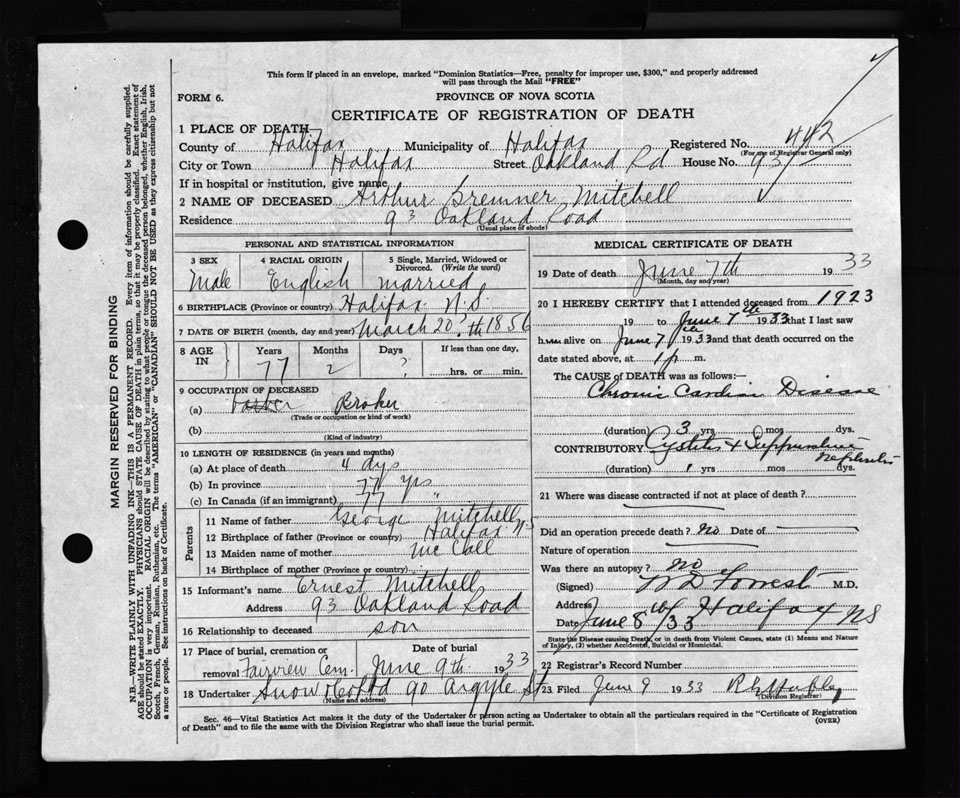 This form if placed in an envelope, marked "Dominion Statistics—Free, penalty for improper use, $300," and properly addressed
will pass through the Mail "FREE"
FORM 6.
PROVINCE OF NOVA SCOTIA
CERTIFICATE OF REGISTRATION OF DEATH
1 PLACE OF DEATH
County of Halifax Municipality of Halifax Registered No. 442
(For use of Registrar General only)
City or Town Halifax Street Oakland Rd House No. 93
If in hospital or institution, give name
2 NAME OF DECEASED Arthur Bremner Mitchell
Residence 93 Oakland Road
(Usual place of abode)
PERSONAL AND STATISTICAL INFORMATION
3 SEX Male
4 RACIAL ORIGIN English
5 Single, Married, Widowed or Divorced. (Write the word) married
6 BIRTHPLACE (Province or country) Halifax N.S.
7 DATE OF BIRTH (month, day and year) March 20?th 1856
8 AGE IN Years 77 Months 2 Days ? If less than one day, hrs. or min.
9 OCCUPATION OF DECEASED
(a) Broker
(Trade or occupation or kind of work)
(b)
(Kind of industry)
10 LENGTH OF RESIDENCE (in years and months)
(a) At place of death 4 dys
(b) In province 77 yrs
(c) In Canada (if an immigrant) 77 "
Parents
11 Name of father George Mitchell
12 Birthplace of father (Province or country) Halifax N.S
13 Maiden name of mother McCall
14 Birthplace of mother (Province or country)
15 Informant's name Ernest Mitchell
Address 93 Oakland Road
16 Relationship to deceased son
17 Place of burial, cremation or removal Fairview Cem. Date of burial June 9th. 1933
18 Undertaker Snow & Co Ltd 90 Argyle St
(Name and address)
MEDICAL CERTIFICATE OF DEATH
19 Date of death June 7th 1933
(Month, day and year)
20 I HEREBY CERTIFY that I attended deceased from 1923
19 to June 7th 1933 that I last saw
him alive on June 7th 1933 and that death occurred on the
date stated above, at 1 p m.
The CAUSE of DEATH was as follows:—
Chronic Cardiac Disease
(duration) 3 yrs mos dys.
CONTRIBUTORY Cystitis & Suppurative Nephritis
(duration) 1 yrs mos dys.
21 Where was disease contracted if not at place of death?
Did an operation precede death? no Date of
Nature of operation
Was there an autopsy? no
(Signed) W D Forrest M.D.
Address Halifax NS
Date June 8th/33
State the Disease causing Death, or in death from Violent Causes, state (1) Means and Nature
of Injury, (2) whether Accidental, Suicidal or Homicidal.
22 Registrar's Record Number
23 Filed June 9 1933
(Division Registrar)
Sec. 46—Vital Statistics Act makes it the duty of the Undertaker or person acting as Undertaker to obtain all the particulars required in the "Certificate of Registration
of Death" and to file the same with the Division Registrar who shall issue the burial permit.
(OVER)
MARGIN RESERVED FOR BINDING
N.B.—WRITE PLAINLY WITH UNFADING INK—THIS IS A PERMANENT RECORD. Every item of information should be carefully supplied.
AGE should be stated EXACTLY. PHYSICIANS should STATE CAUSE OF DEATH in plain terms, so that it may be properly classified. Exact statement of
OCCUPATION is very important. RACIAL ORIGIN will be described by stating to what people or tongue the deceased person belonged, whether English, Irish,
Scotch, French, German, Russian, Ruthenian, etc. The terms "AMERICAN" or "CANADIAN" SHOULD NOT BE USED as they express citizenship but not
a race or people. See instructions on back of Certificate.